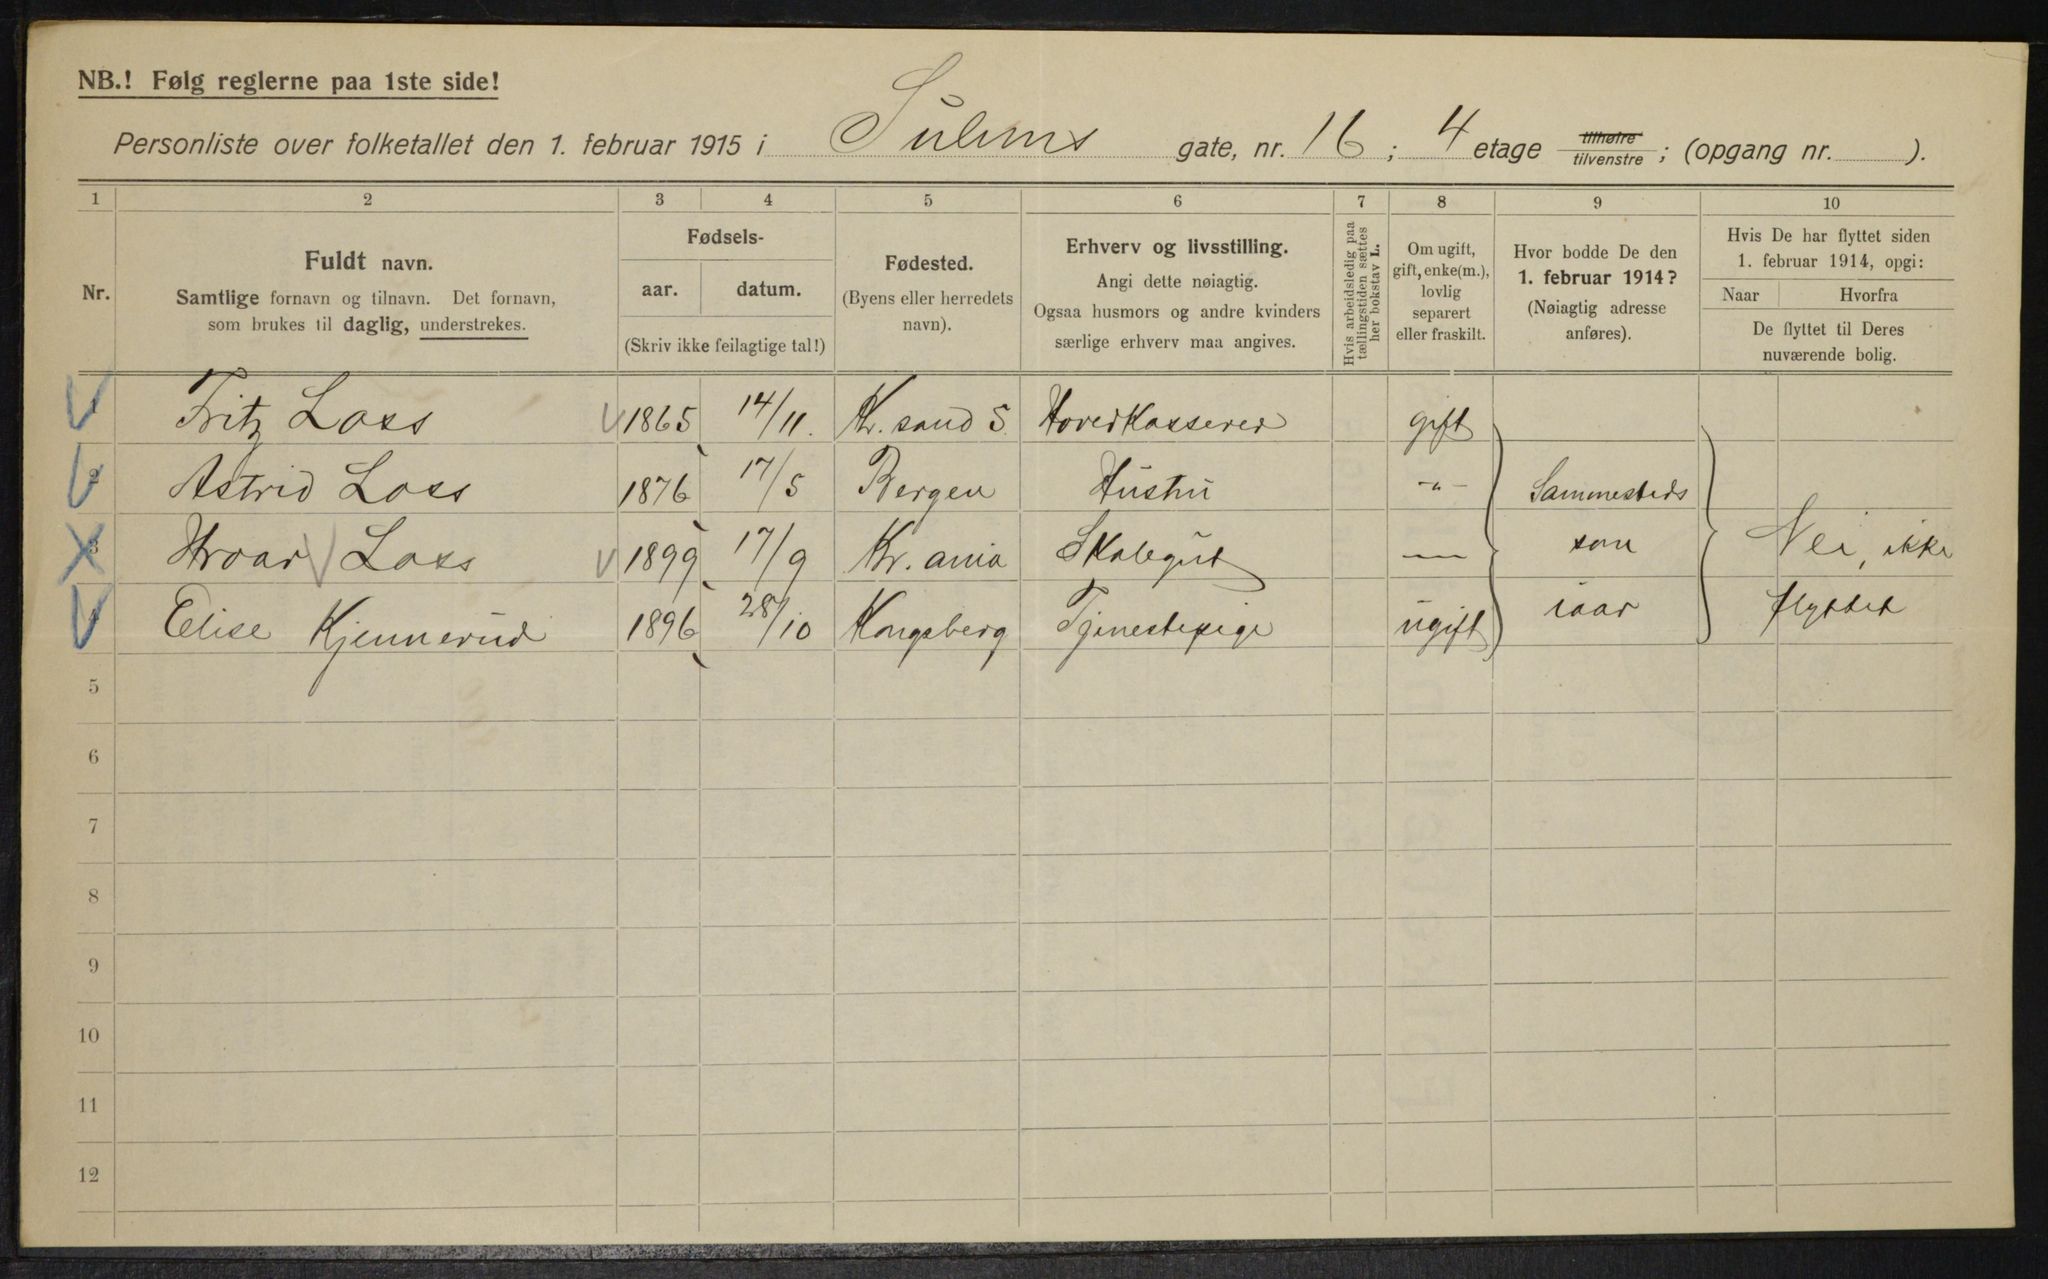 NB.! Følg reglerne paa 1ste side!
Personliste over folketallet den 1. februar 1915 i Sulums gate, nr. 16 ; 4 etage tilhøire tilvenstre ; (opgang nr. ).
1 2 3 4 5 6 7 8 9 10
Nr.
Fuldt navn.
Samtlige fornavn og tilnavn. Det fornavn,
som brukes til daglig, understrekes.
Fødsels-
aar. datum.
(Skriv ikke feilagtige tal!)
Fødested.
(Byens eller herredets
navn).
Erhverv og livsstilling.
Angi dette nøiagtig.
Ogsaa husmors og andre kvinders
særlige erhverv maa angives.
Hvis arbeidsledig paa
tællingstiden sættes
her bokstav L.
Om ugift,
gift, enke(m.),
lovlig
separert
eller fraskilt.
Hvor bodde De den
1. februar 1914?
(Nøiagtig adresse
anføres).
Hvis De har flyttet siden
1. februar 1914, opgi:
Naar Hvorfra
De flyttet til Deres
nuværende bolig.
1 Fritz Loss 1865 14/11. Kr. sand S. Hovedkasserer gift
2 Astrid Loss 1876 17/5 Bergen Hustru -"- Sammesteds
3 Hroar Loss 1899 17/9 Kr. ania Skolegut — som Nei, ikke
4 Elise Kjennerud 1896 28/10 Kongsberg Tjenestepige ugift iaar flyttet
5
6
7
8
9
10
11
12